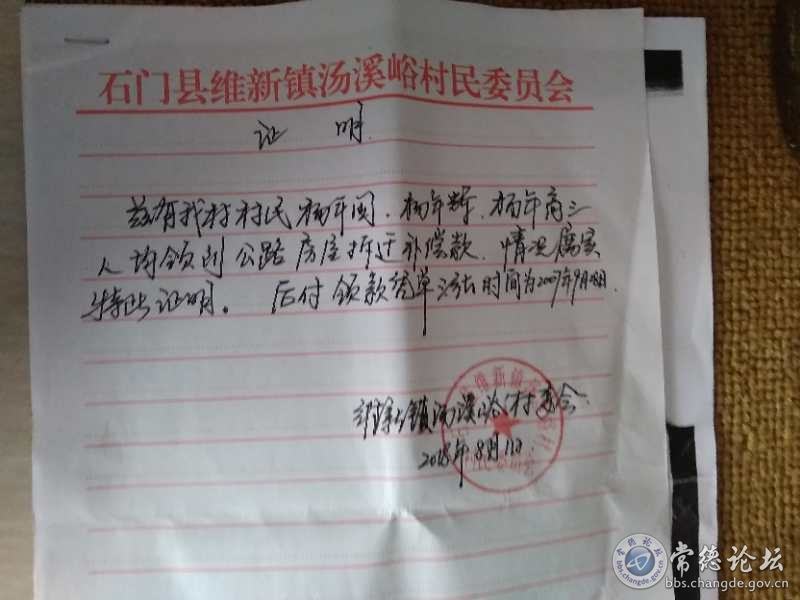 石门县维新镇汤溪峪村民委员会
证 明
兹有我村村民杨年阅、杨年辉、杨年高三
人均领到公路房屋拆迁补偿款、情况属实
特此证明。后付领款清单 时间为2007年9月28日.
维新镇汤溪峪村委会
2018年8月1日
常德论坛
bbs.changde.gov.cn